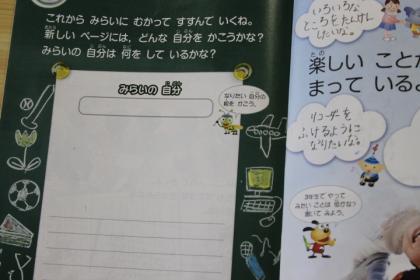 これから みらいに むかって すすんで いくね。
新しい ページには、どんな 自分を かこうかな?
みらいの 自分は 何を して いるかな?
みらいの 自分
なりたい 自分の
絵を かこう。
いろいろな
ところをたんけん
したいな。
楽しい ことが
まって いる。
リコーダーを
ふけるように
なりたいな。
3年生で やって
みたい ことは 何かな?
書いて みよう。